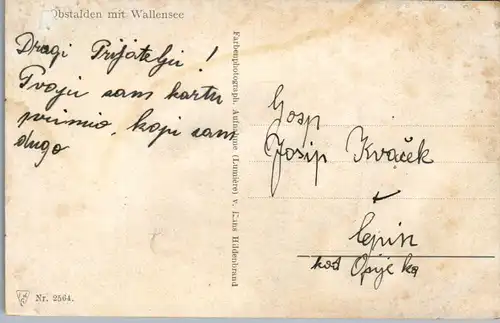 Obstalden mit Wallensee
Dragi Prijatelju!
Tvoju sam kartu
primio, koji sam
dugo
Farbenphotograph. Aufnahme (Lumière) v. Hans Hildenbrand
Gosp
Josip Kvaček
Čepin
kod Osijeka
Nr. 2564.